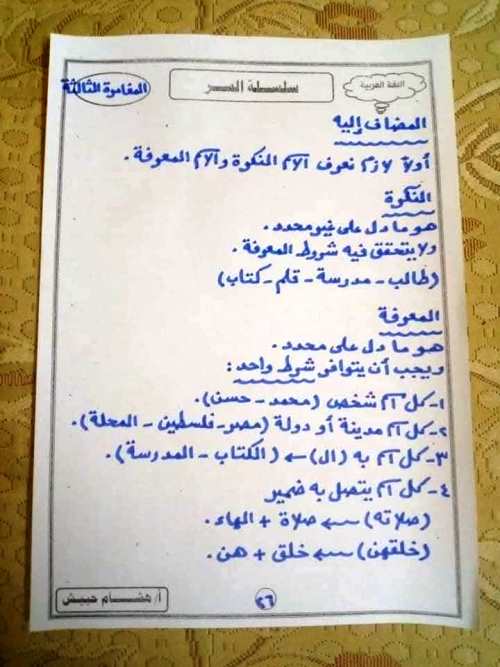 اللغة العربية
سلسلة السر
المغامرة الثالثة
المضاف إليه
أولاً لازم نعرف الاسم النكرة والاسم المعرفة .
النكرة
هو ما دل على غير محدد .
ولا يتحقق فيه شروط المعرفة .
(طالب - مدرسة - قلم - كتاب)
المعرفة
هو ما دل على محدد .
ويجب أن يتوافر شرط واحد :
١- كل اسم شخص (محمد - حسن).
٢- كل اسم مدينة أو دولة (مصر - فلسطين - المحلة).
٣- كل اسم به (ال) ← (الكتاب - المدرسة).
٤- كل اسم يتصل به ضمير
(صلاته) ← صلاة + الهاء .
(خلقهن) ← خلق + هن .
٢٦
أ/ هشام حبيش